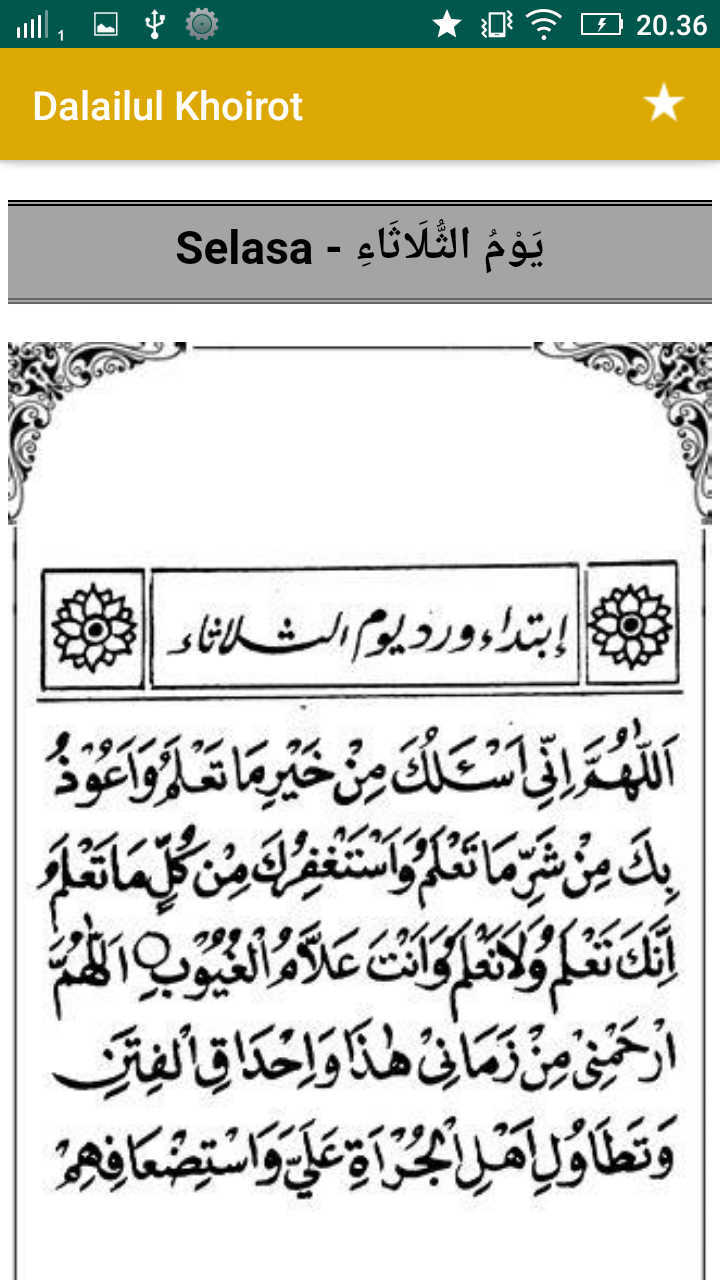 1 20.36
Dalailul Khoirot
Selasa - يَوْمُ الثُّلَاثَاءِ
إبتداء ورد يوم الثلاثاء
اَللّٰهُمَّ اِنِّى اَسْـَٔلُكَ مِنْ خَيْرِ مَا تَعْلَمُ وَاَعُوْذُ
بِكَ مِنْ شَرِّ مَا تَعْلَمُ وَاَسْتَغْفِرُكَ مِنْ كُلِّ مَا تَعْلَمُ
اِنَّكَ تَعْلَمُ وَلَا نَعْلَمُ وَاَنْتَ عَلَّامُ الْغُيُوْبِ ○ اَللّٰهُمَّ
ارْحَمْنِىْ مِنْ زَمَانِىْ هٰذَا وَاِحْدَاقِ الْفِتَنِ
وَتَطَاوُلِ اَهْلِ الْجُرْاَةِ عَلَيَّ وَاسْتِضْعَافِهِمْ